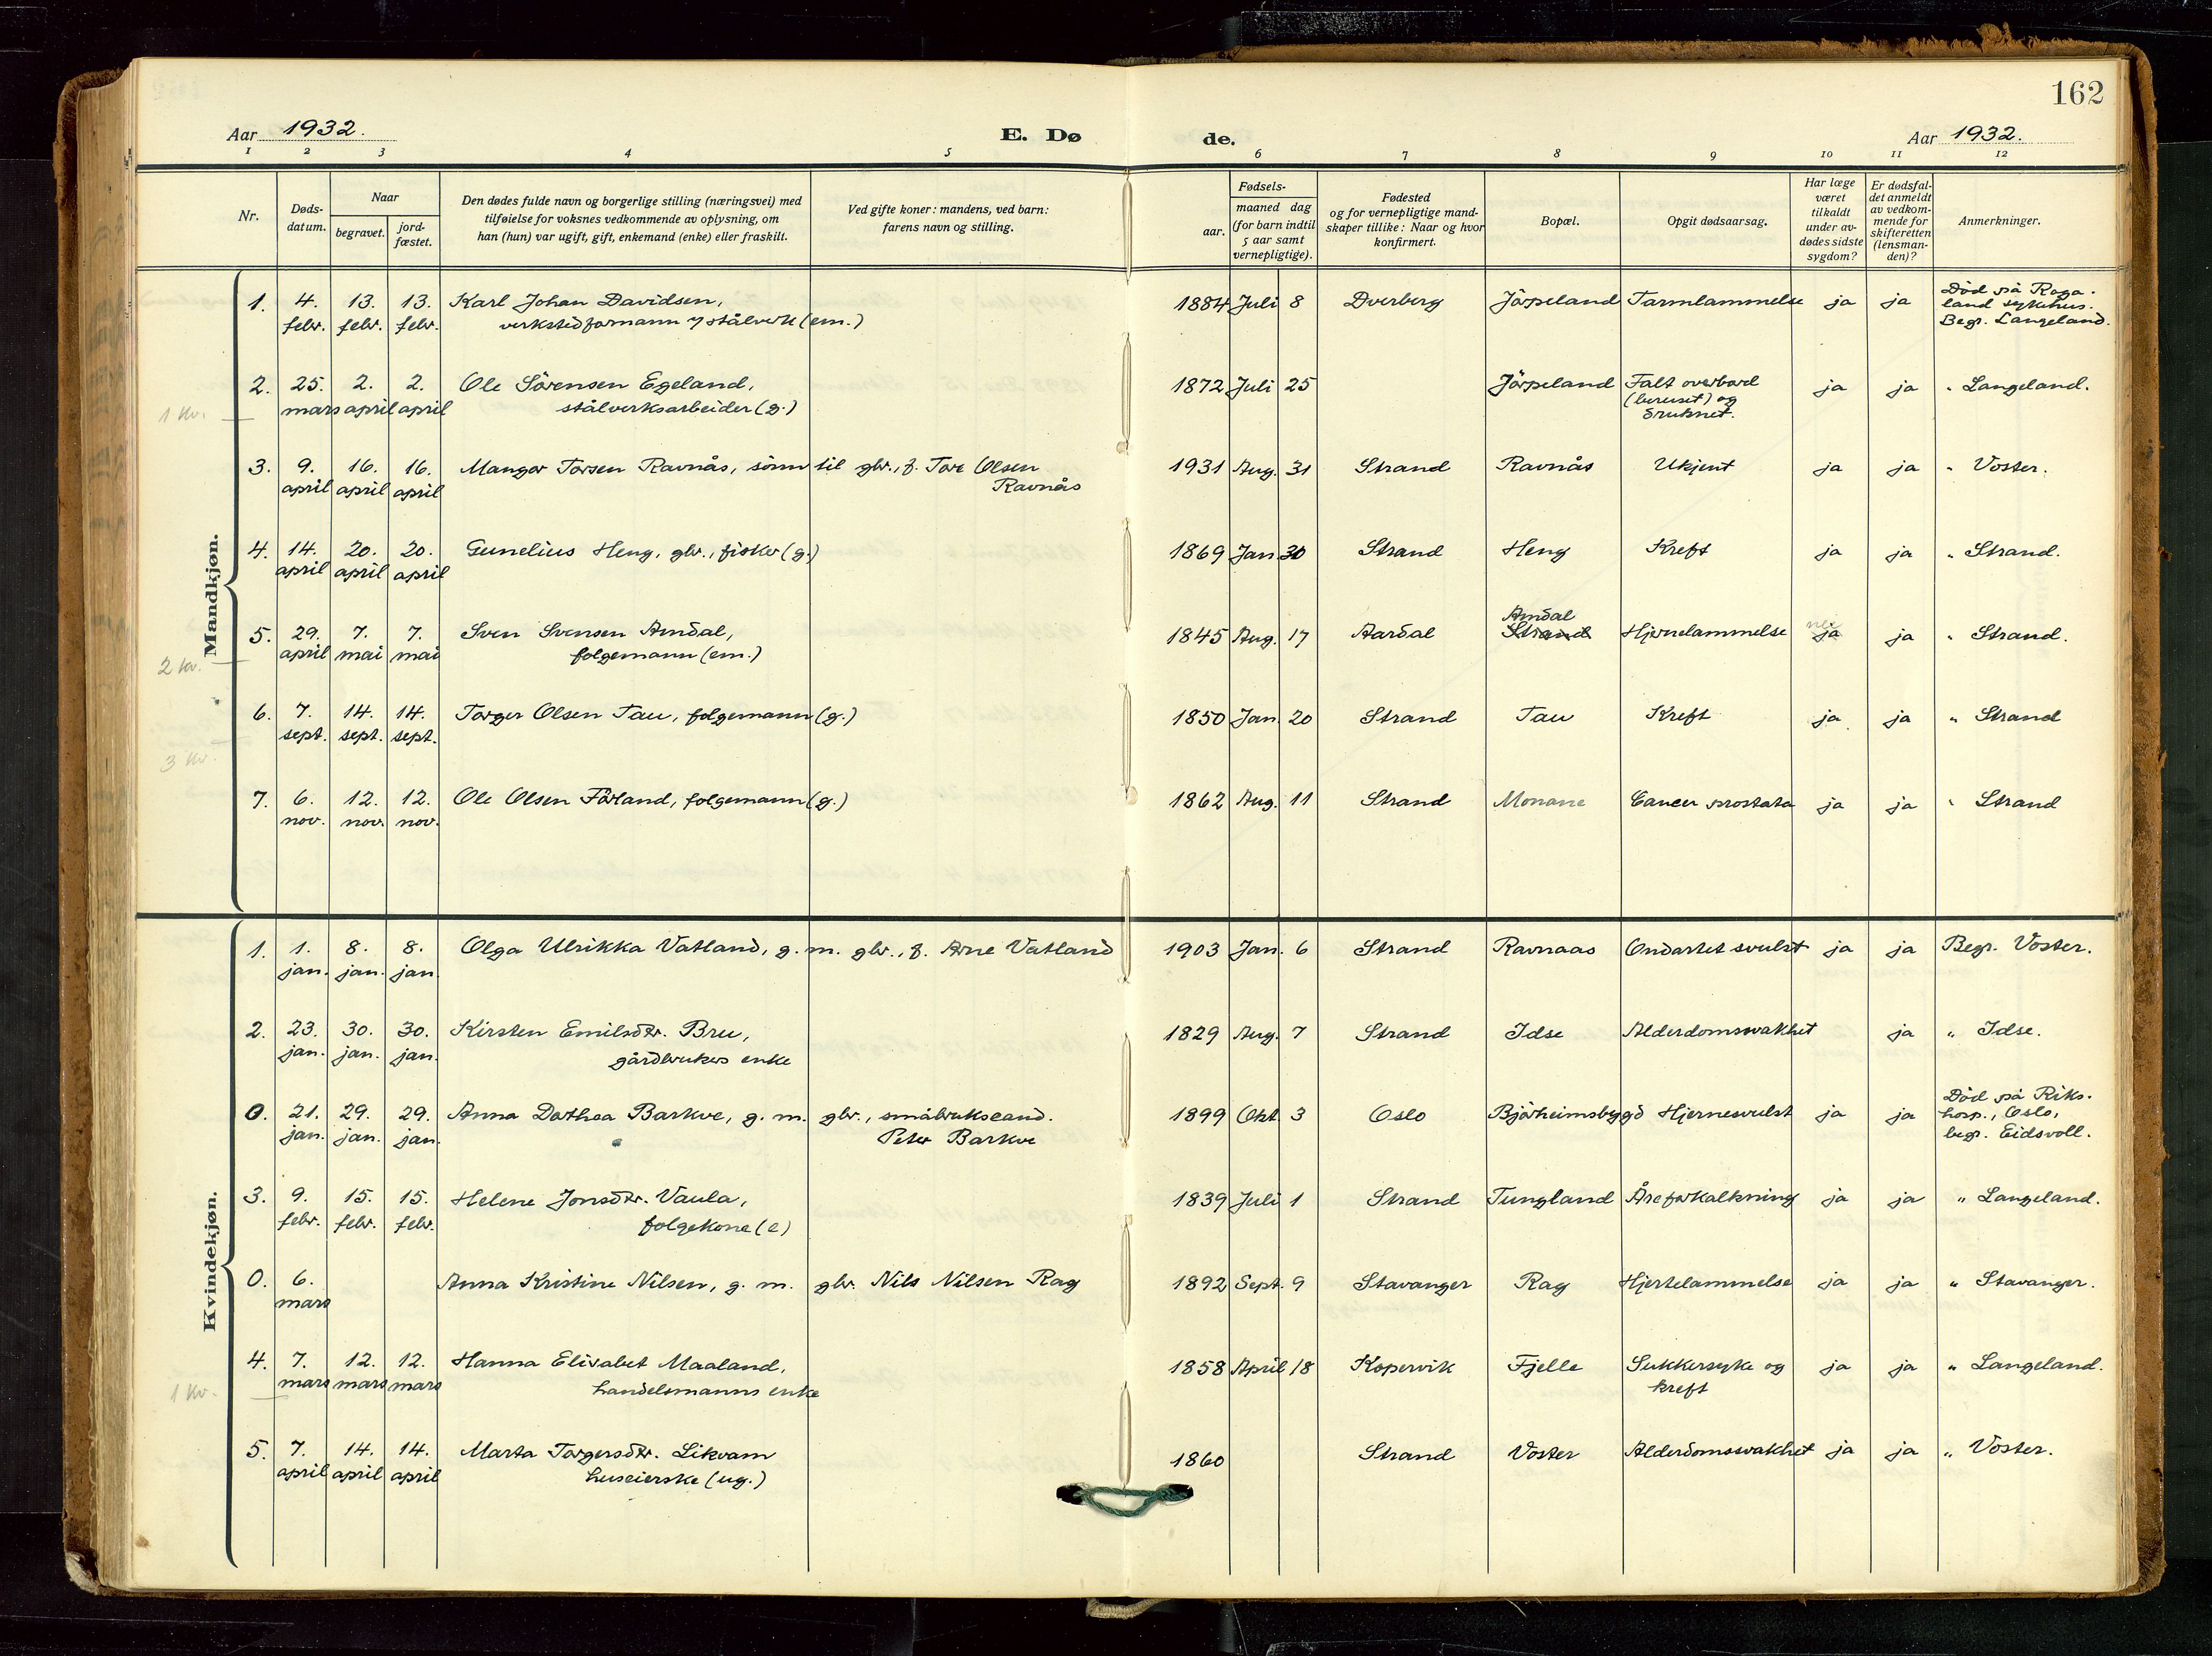 162
Aar 1932. E. Dø de. Aar 1932.
1 2 3 4 5 6 7 8 9 10 11 12
Nr. Døds-datum. Naar begravet. jord-fæstet. Den dødes fulde navn og borgerlige stilling (næringsvei) med tilføielse for voksnes vedkommende av oplysning, om han (hun) var ugift, gift, enkemand (enke) eller fraskilt. Ved gifte koner: mandens, ved barn: farens navn og stilling. Fødsels- aar. maaned dag (for barn indtil 5 aar samt vernepligtige). Fødested og for vernepligtige mand-skaper tillike: Naar og hvor konfirmert. Bopæl. Opgit dødsaarsag. Har læge været tilkaldt under av-dødes sidste sygdom? Er dødsfal-det anmeldt av vedkom-mende for skifteretten (lensman-den)? Anmerkninger.
Mandkjøn.
1. 4. febr. 13. febr. 13. febr. Karl Johan Davidsen, verkstedformann v stålverk (em.) 1884 Juli 8 Dverberg Jörpeland Tarmlammelse ja ja Död på Roga-land sykehus. Begr. Langeland.
2. 25. mars 2. april 2. april Ole Sörensen Egeland, stålverksarbeider (g.) 1872 Juli 25 Jörpeland Falt overbord (beruset) og druknet. ja ja " Langeland.
1 Kv.
3. 9. april 16. april 16. april Mangor Torsen Ravnås, sönn til gbr., f. Tore Olsen Ravnås 1931 Aug. 31 Strand Ravnås Ukjent ja ja " Voster.
4. 14. april 20. april 20. april Gunelius Heng, gbr., fisker (g.) 1869 Jan. 30 Strand Heng Kreft ja ja " Strand.
5. 29. april 7. mai 7. mai Sven Svensen Amdal, folgemann (em.) 1845 Aug. 17 Aardal Amdal Strand Hjernelammelse nei ja ja " Strand.
2 Kv.
6. 7. sept. 14. sept. 14. sept. Torger Olsen Tau, folgemann (g.) 1850 Jan. 20 Strand Tau Kreft ja ja " Strand
3 Kv.
7. 6. nov. 12. nov. 12. nov. Ole Olsen Förland, folgemann (g.) 1862 Aug. 11 Strand Monane Cancer prostata ja ja " Strand
Kvindekjøn.
1. 1. jan. 8. jan. 8. jan. Olga Ulrikka Vatland, g. m. gbr., f. Arne Vatland 1903 Jan. 6 Strand Ravnaas Ondartet svulst ja ja Begr. Voster.
2. 23. jan. 30. jan. 30. jan. Kirsten Emilsdtr. Bru, gårdbrukers enke 1829 Aug. 7 Strand Idse Alderdomssvakhet ja " Idse.
0. 21. jan. 29. jan. 29. jan. Anna Dorthea Barkve, g. m. gbr., småbrukscand. Peter Barkve 1899 Okt. 3 Oslo Björheimsbygd Hjernesvulst ja ja Död på Riks-hosp., Oslo, begr. Eidsvoll.
3. 9. febr. 15. febr. 15. febr. Helene Jonsdtr. Vaula, folgekone (e) 1839 Juli 1 Strand Tungland Åreforkalkning ja ja " Langeland.
0. 6. mars Anna Kristine Nilsen, g. m. gbr. Nils Nilsen Rag 1892 Sept. 9 Stavanger Rag Hjertelammelse ja ja " Stavanger.
4. 7. mars 12. mars 12. mars Hanna Elisabet Maaland, handelsmanns enke 1858 April 18 Kopervik Fjelle Sukkersyke og kreft ja ja " Langeland.
1 Kv.
5. 7. april 14. april 14. april Marta Torgersdtr. Likvam huseierske (ug.) 1860 Strand Voster Alderdomssvakhet ja ja " Voster.